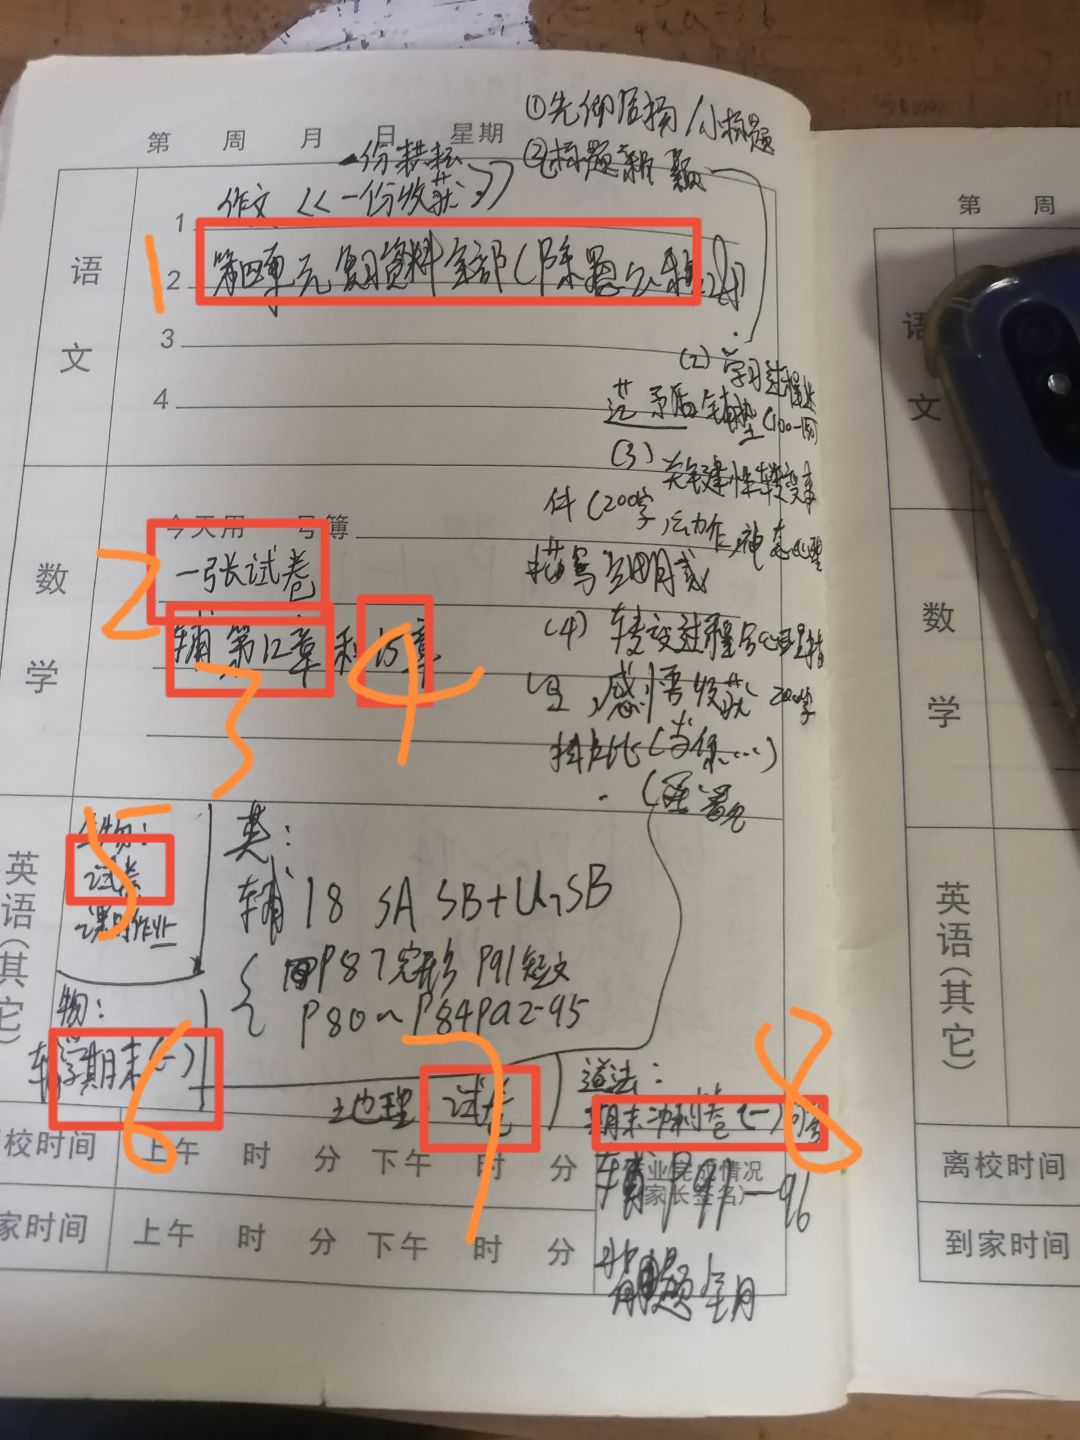 第 周 月 日 星期
①先仰后扬/小标题
②标题新颖
一份耕耘
1 作文《一份收获》
语文
1
2 第四单元复习资料全部(除
3
4
(2) 学习过程
矛盾铺垫(100-150)
(3) 关键性转变事
件(200字, 动作, 神态心理
描写
(4) 转变过程与心理描
写, 感悟收获 200字
(当你……)
今天用 号簿
数学
2
一张试卷
辅 第12章 和 15章
3
4
英语(其它)
生物:
试卷
课时作业
5
英:
辅 18 SA SB+U7SB
P87完形 P91短文
P80~P84 P92-95
物:
辅 学期末(一)
6
地理 试卷
7
道法:
期末冲刺卷(一)
8
辅 P91—96
背
离校时间 上午 时 分 下午 时 分
作业完成情况
(家长签名)
到家时间 上午 时 分 下午 时 分
第 周
语文
数学
英语(其它)
离校时间
到家时间